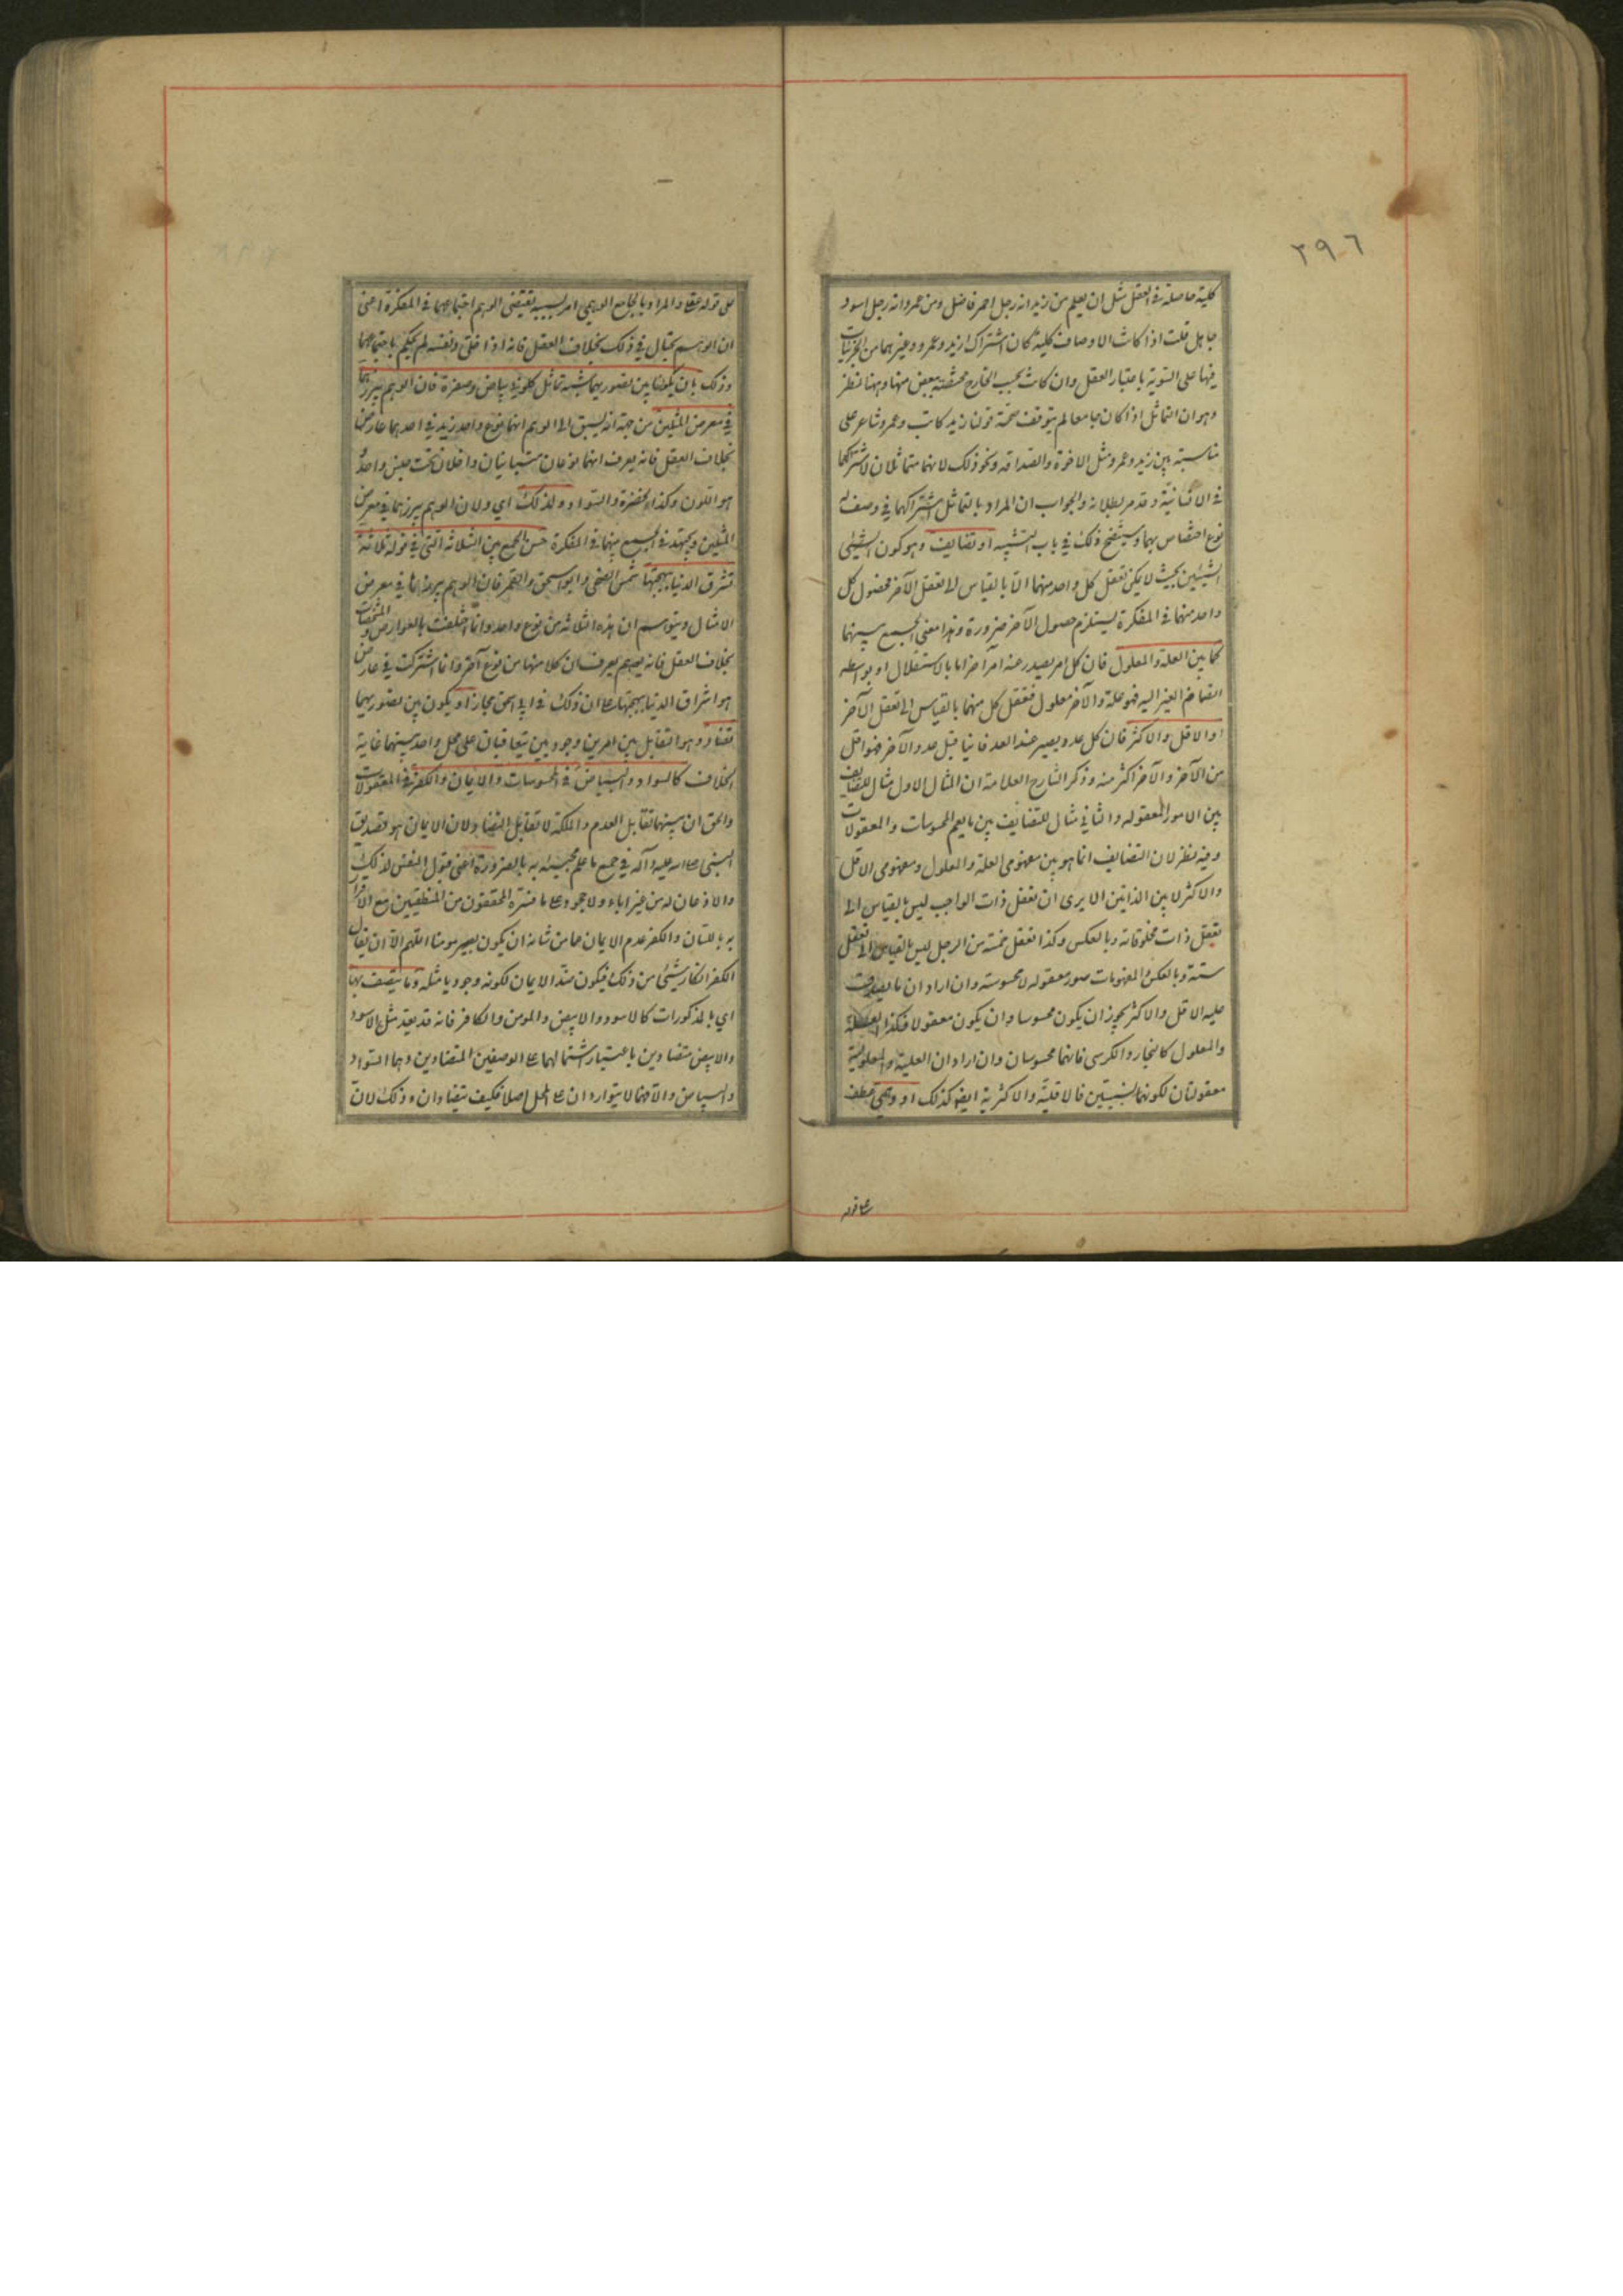 ٢٩٦
كلية حاصلة في العقل مثل ان يعلم من زيد انه رجل احمر فاضل ومن عمرو انه رجل اسود
جاهل قلت اذا كانت الاوصاف كلية كان اشتراك زيد وعمرو وغيرهما من الجزئيات
فيها على السوية باعتبار العقل وان كانت بحسب الخارج مختصة ببعض منها وههنا نظر
وهو ان التماثل اذا كان جامعا لم يتوقف صحة قولنا زيد كاتب وعمرو شاعر على
مناسبة بين زيد وعمرو مثل الاخوة والصداقة ونحو ذلك لانهما متماثلان لاشتراكهما
في الانسانية وقد مر بطلانه والجواب ان المراد بالتماثل اشتراكهما في وصف له
نوع اختصاص بهما وسيتضح ذلك في باب التشبيه او تضايف وهو كون الشيئ
الشيئين بحيث لا يمكن تعقل كل واحد منهما الا بالقياس الى تعقل الآخر فحصول كل
واحد منهما في المفكرة يستلزم حصول الآخر ضرورة وهذا معنى الجمع بينهما
كما بين العلة والمعلول فان كل امر يصدر عنه امر آخر اما بالاستقلال او بواسطة
انضمام الغير اليه فهو علة والآخر معلول فتعقل كل منهما بالقياس الى تعقل الآخر
او الاقل والاكثر فان كل عدد يصير عند العد فانيا قبل عدد آخر فهو اقل
من الآخر والآخر اكثر منه وذكر الشارح العلامة ان المثال الاول مثال للتضايف
بين الامور المعقولة والثاني مثال للتضايف بين ما يعم المحسوسات والمعقولات
وفيه نظر لان التضايف انما هو بين مفهومي العلة والمعلول ومفهومي الاقل
والاكثر لا بين الذاتين الا يرى ان تعقل ذات الواجب ليس بالقياس الى
تعقل ذات مخلوقاته وبالعكس وكذا تعقل خمسة من الرجل ليس بالقياس الى تعقل
ستة وبالعكس المفهومات صور معقولة لا محسوسة وان اراد ان ما يصدق
عليه الاقل والاكثر يجوز ان يكون محسوسا وان يكون معقولا فكذا العلة
والمعلول كالنجار والكرسي فانهما محسوسان وان اراد ان العلية والمعلولية
معقولتان لكونهما نسبتين فالاقلية والاكثرية ايضا كذلك او وهمي عطف
على قوله
على قوله عقلا والمراد بالجامع الوهمي امر بسببه يقتضي الوهم اجتماعهما في المفكرة اعني
ان الوهم يحتال في ذلك بخلاف العقل فانه اذا خلي ونفسه لم يحكم باجتماعهما
وذلك بان يكون بين تصوريهما شبه تماثل كلوني بياض وصفرة فان الوهم يبرزهما
في معرض المثلين من جهة انه يسبق الى الوهم انهما نوع واحد زيد في احدهما عارض
بخلاف العقل فانه يعرف انهما نوعان متباينان داخلان تحت جنس واحد
هو اللون وكذا الخضرة والسواد ولذلك اي ولان الوهم يبرزهما في معرض
المثلين ويجتهد في الجمع بينهما في المفكرة حسن الجمع بين الثلاثة التي في قوله ثلاثة
تشرق الدنيا ببهجتها شمس الضحى وابو اسحق والقمر فان الوهم يبرزها في معرض
الامثال ويتوهم ان هذه الثلاثة من نوع واحد وانما اختلفت بالعوارض والمشخصات
بخلاف العقل فانه يعرف ان كلا منها من نوع آخر وانما اشتركت في عارض
هو اشراق الدنيا ببهجتها على ان ذلك في ابي اسحق مجاز او يكون بين تصوريهما
تضاد وهو التقابل بين امرين وجوديين يتعاقبان على محل واحد بينهما غاية
الخلاف كالسواد والبياض في المحسوسات والايمان والكفر في المعقولات
والحق ان بينهما تقابل العدم والملكة لا تقابل التضاد لان الايمان هو تصديق
النبي صلى الله عليه وآله في جميع ما علم مجيئه به بالضرورة اعني قبول النفس لذلك
والاذعان له من غير اباء ولا جحود على ما فسره المحققون من المنطقيين مع الاقرار
به باللسان والكفر عدم الايمان عما من شانه ان يكون مومنا اللهم الا ان يقال
الكفر انكار شيئ من ذلك فيكون ضد الايمان لكونه وجوديا مثله وما يتصف بها
اي بالمذكورات كالاسود والابيض والمومن والكافر فانه قد يعد مثل الاسود
والابيض متضادين باعتبار اشتمالهما على الوصفين المتضادين وهما السواد
والبياض والا فهما لا يتواردان على المحل اصلا فكيف يتضادان وذلك لان